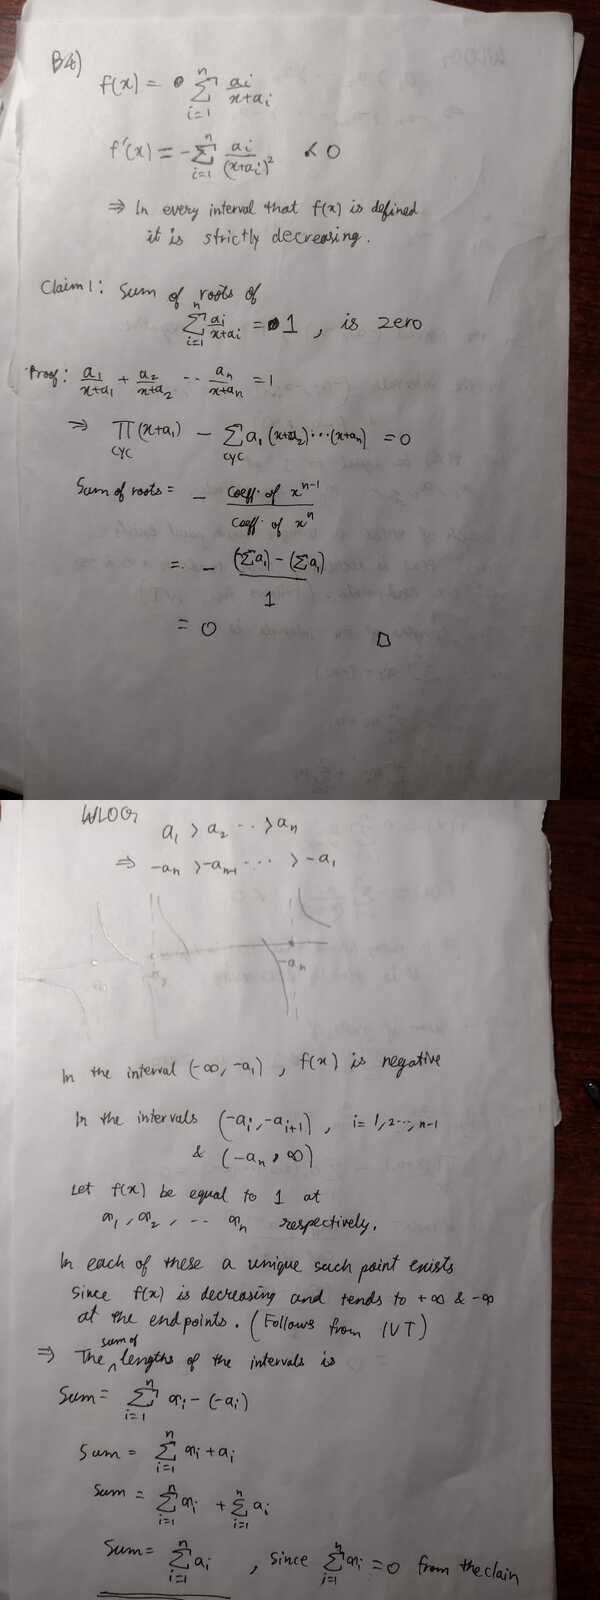 B4)
f(x) = Σ_{i=1}^{n} a_i/(x+a_i)
f'(x) = -Σ_{i=1}^{n} a_i/(x+a_i)² < 0
⇒ In every interval that f(x) is defined
it is strictly decreasing.
Claim 1: Sum of roots of
Σ_{i=1}^{n} a_i/(x+a_i) = 1 , is zero
Proof: a_1/(x+a_1) + a_2/(x+a_2) ... a_n/(x+a_n) = 1
⇒ Π_{cyc} (x+a_1) - Σ_{cyc} a_1 (x+a_2)...(x+a_n) = 0
Sum of roots = - coeff. of x^{n-1} / coeff. of x^n
= - ((Σa_1) - (Σa_1)) / 1
= 0 □
WLOG
a_1 > a_2 ... > a_n
⇒ -a_n > -a_{n-1} ... > -a_1
-a_n
In the interval (-∞, -a_1) , f(x) is negative
In the intervals (-a_i, -a_{i+1}) , i = 1, 2 ..., n-1
& (-a_n, ∞)
Let f(x) be equal to 1 at
x_1, x_2, ... x_n respectively.
In each of these a unique such point exists
since f(x) is decreasing and tends to +∞ & -∞
at the endpoints. (Follows from IVT)
⇒ The sum of lengths of the intervals is
Sum = Σ_{i=1}^{n} x_i - (-a_i)
Sum = Σ_{i=1}^{n} x_i + a_i
Sum = Σ_{i=1}^{n} x_i + Σ_{i=1}^{n} a_i
Sum = Σ_{i=1}^{n} a_i , since Σ_{i=1}^{n} x_i = 0 from the claim